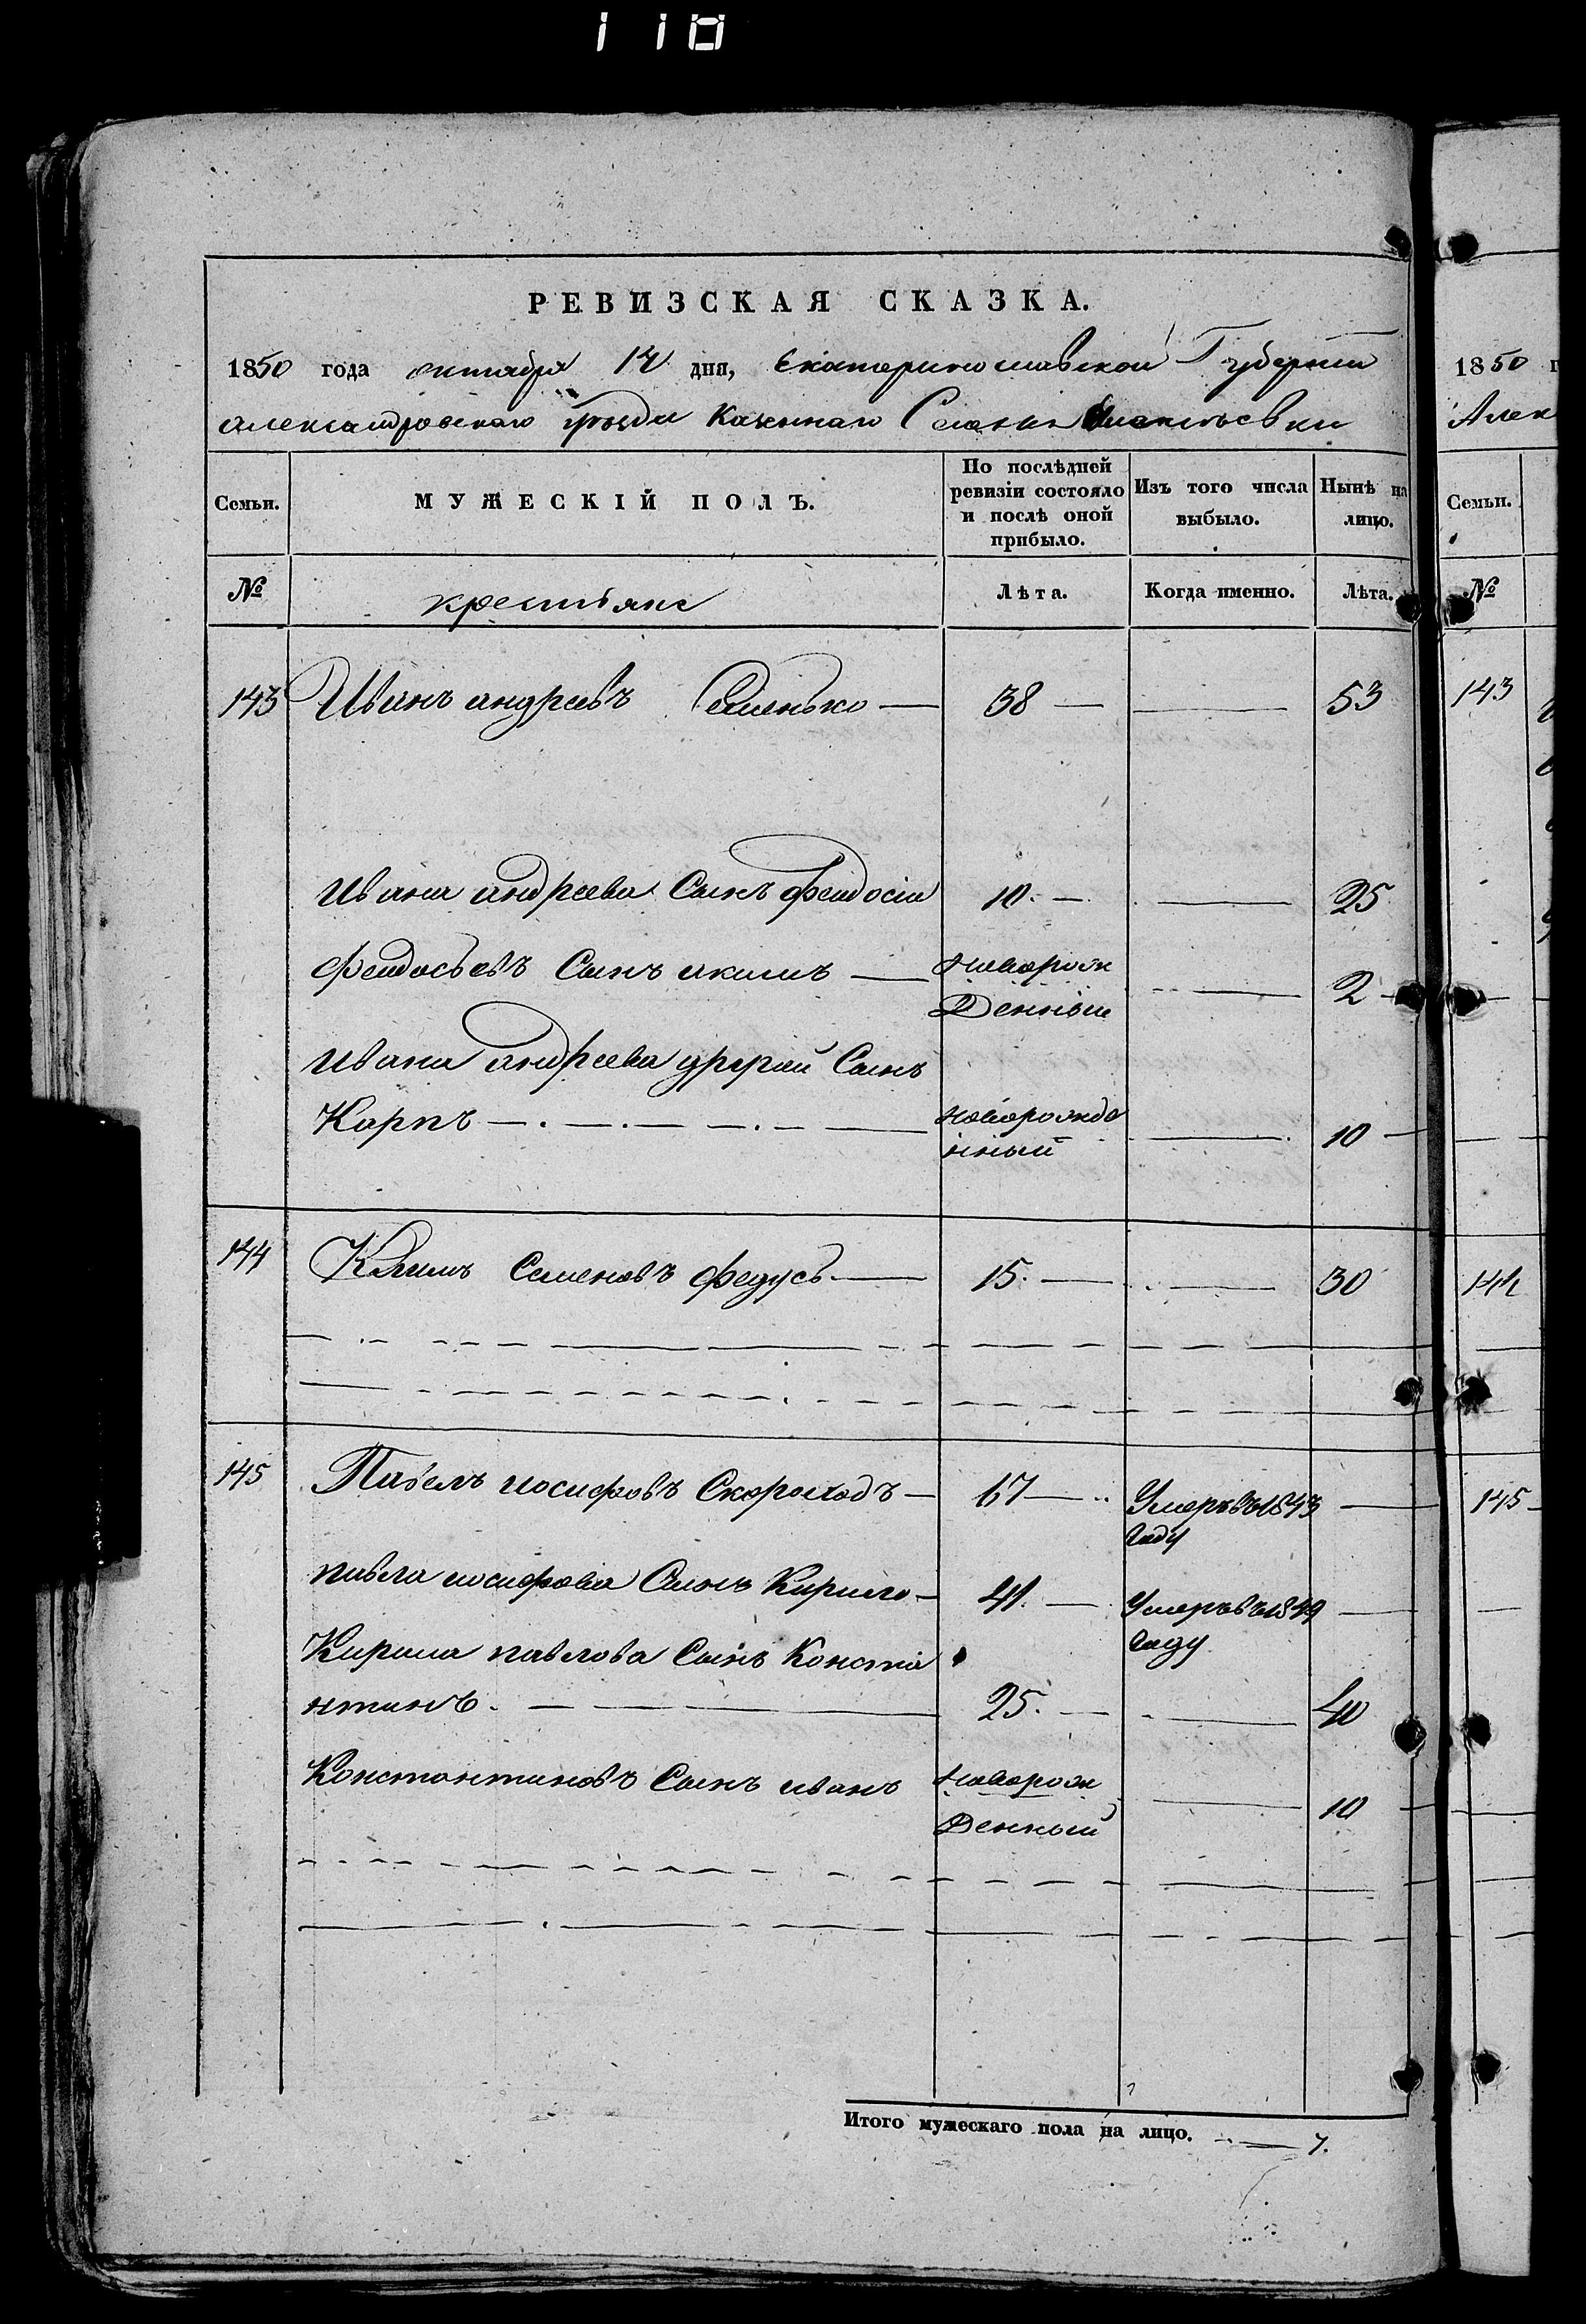 110
РЕВИЗСКАЯ СКАЗКА.
1850 года октября 14 дня, Екатеринославской Губернии
александровского уезда Казенного Селения
Семьи. МУЖЕСКІЙ ПОЛЪ. По послѣдней ревизіи состояло и послѣ оной прибыло. Изъ того числа выбыло. Нынѣ на лицо.
№ крестьяне Лѣта. Когда именно. Лѣта.
143 Иванъ андреевъ — 38 — — 53
Ивана андреева Сынъ феодосій 10. — — 25
феодосьевъ Сынъ акимъ — Новорож
денный — 2 —
Ивана андреева другой Сынъ
Карпъ — новорожде
нный — 10 —
144 Климъ Семеновъ федусь — 15. — — 30
145 Павелъ иосифовъ Скороходъ — 67 — Умеръ въ 1843 —
Году
павла иосифова Сынъ Кирило — 41. — Умеръ въ 1849 —
Году
Кирила павлова Сынъ Конста
нтинъ. — 25. — — 40
Константиновъ Сынъ иванъ Новорож
денный — 10 —
Итого мужескаго пола на лицо. — 7.
1850 г
Алек
Семьи.
№
143
144
145